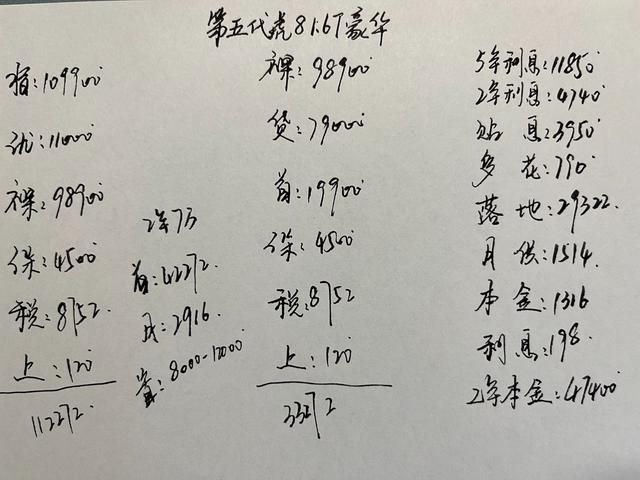 第五代虎81.6T豪华
指:109900
优:11000
裸:98900
保:4500
税:8752.
上:120
112272.
2年7万
首:42272.
月:2916.
置:8000-12000
裸:98900
贷:79000
首:19900
保:4500
税:8752
上:120
33272
5年利息:11850
2年利息:4740
贴息:3950
多花:790
落地:29322.
月供:1514.
本金:1316
利息:198.
2年本金:47400